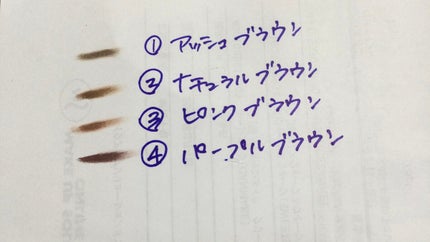 ① アッシュブラウン
② ナチュラルブラウン
③ ピンクブラウン
④ パープルブラウン